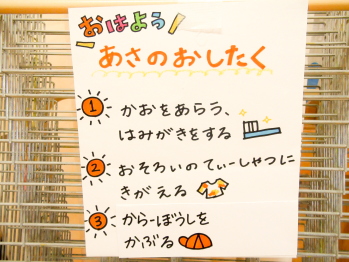 おはよう
あさのおしたく
1 かおをあらう、
はみがきをする
2 おそろいのてぃーしゃつに
きがえる
3 からーぼうしを
かぶる